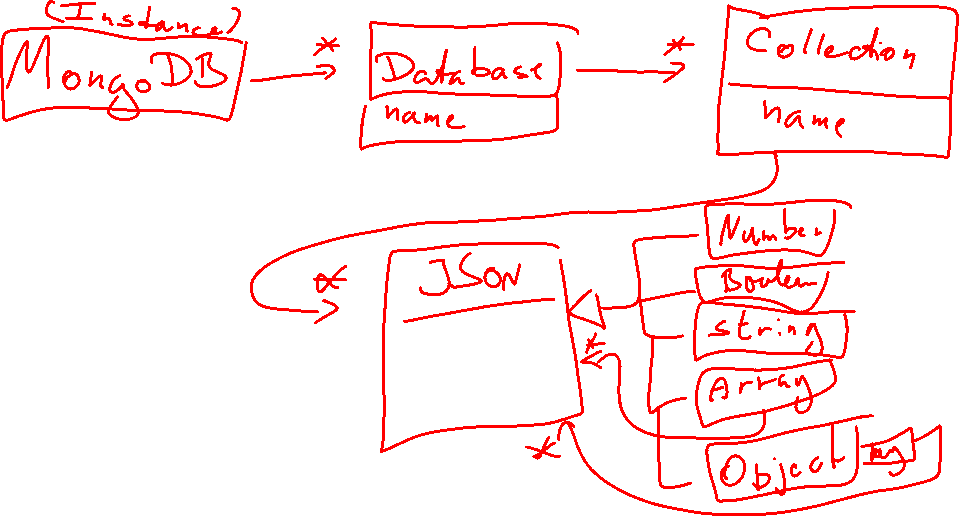 (Instance)
MongoDB
*
Database
name
*
Collection
name
*
JSON
Number
Boolean
String
*
Array
*
Object
key